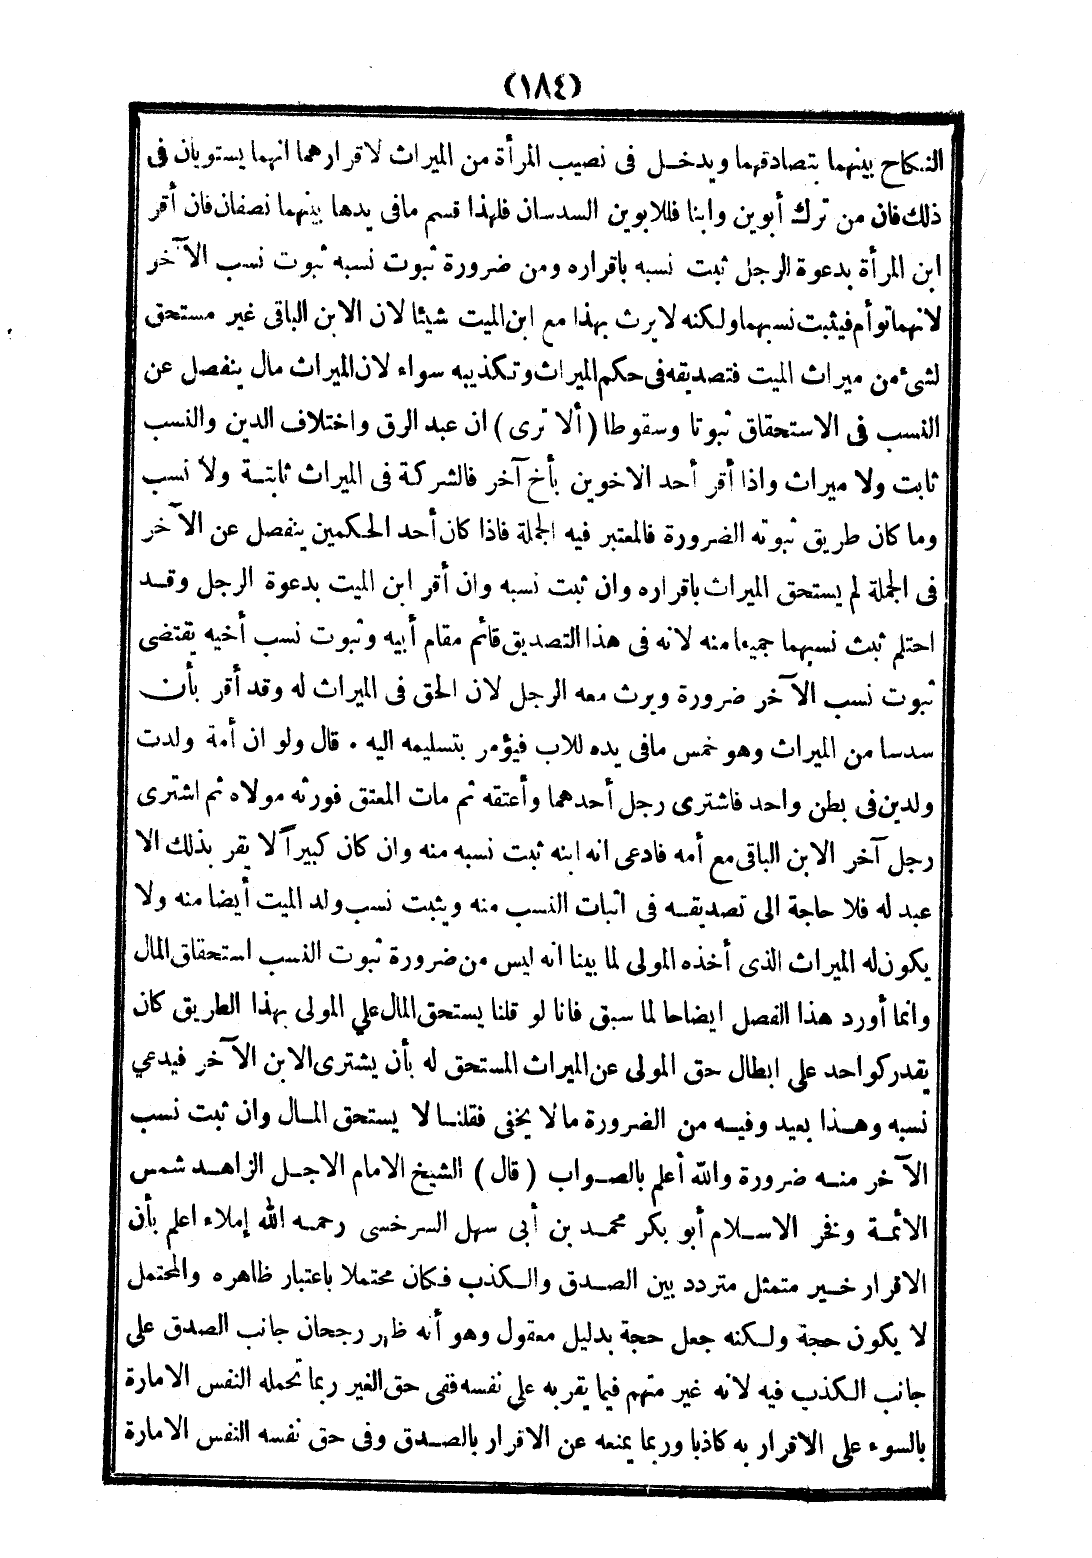 (١٨٤)
النكاح بينهما بتصادقهما ويدخل فى نصيب المرأة من الميراث لاقرارهما انهما يستويان فى
ذلك فان من ترك أبوين وابنا فللابوين السدسان فلهذا قسم مافى يدها بينهما نصفان فان أقر
ابن المرأة بدعوة الرجل ثبت نسبه باقراره ومن ضرورة ثبوت نسبه ثبوت نسب الآخر
لانهما توأم فيثبت نسبهما ولكنه لايرث بهذا مع ابن الميت شيئا لان الابن الباقى غير مستحق
لشئ من ميراث الميت فتصديقه فى حكم الميراث وتكذيبه سواء لان الميراث مال ينفصل عن
النسب فى الاستحقاق ثبوتا وسقوطا (ألا ترى) ان عبد الرق واختلاف الدين والنسب
ثابت ولا ميراث واذا أقر أحد الاخوين بأخ آخر فالشركة فى الميراث ثابتة ولا نسب
وما كان طريق ثبوته الضرورة فالمعتبر فيه الجملة فاذا كان أحد الحكمين ينفصل عن الآخر
فى الجملة لم يستحق الميراث باقراره وان ثبت نسبه وان أقر ابن الميت بدعوة الرجل وقد
احتلم ثبث نسبهما جميعا منه لانه فى هذا التصديق قائم مقام أبيه وثبوت نسب أخيه يقتضى
ثبوت نسب الآخر ضرورة ويرث معه الرجل لان الحق فى الميراث له وقد أقر بأن
سدسا من الميراث وهو خمس مافى يده للاب فيؤمر بتسليمه اليه ٠ قال ولو ان أمة ولدت
ولدين فى بطن واحد فاشترى رجل أحدهما وأعتقه ثم مات المعتق فورثه مولاه ثم اشترى
رجل آخر الابن الباقى مع أمه فادعى انه ابنه ثبت نسبه منه وان كان كبيراً لا يقر بذلك الا
عبد له فلا حاجة الى تصديقه فى اثبات النسب منه ويثبت نسب ولد الميت أيضا منه ولا
يكون له الميراث الذى أخذه المولى لما بينا انه ليس من ضرورة ثبوت النسب استحقاق المال
وانما أورد هذا الفصل ايضاحا لما سبق فانا لو قلنا يستحق المال علي المولى بهذا الطريق كان
يقدر كواحد على ابطال حق المولى عن الميراث المستحق له بأن يشترى الابن الآخر فيدعي
نسبه وهذا بعيد وفيه من الضرورة ما لا يخفى فقلنا لا يستحق المال وان ثبت نسب
الآخر منه ضرورة والله أعلم بالصواب (قال) الشيخ الامام الاجل الزاهد شمس
الأئمة وفخر الاسلام أبو بكر محمد بن أبى سهل السرخسى رحمه الله إملاء اعلم بأن
الاقرار خبر متمثل متردد بين الصدق والكذب فكان محتملا باعتبار ظاهره والمحتمل
لا يكون حجة ولكنه جعل حجة بدليل معقول وهو أنه ظهر رجحان جانب الصدق على
جانب الكذب فيه لانه غير متهم فيما يقر به على نفسه ففى حق الغير ربما تحمله النفس الامارة
بالسوء على الاقرار به كاذبا وربما يمنعه عن الاقرار بالصدق وفى حق نفسه النفس الامارة